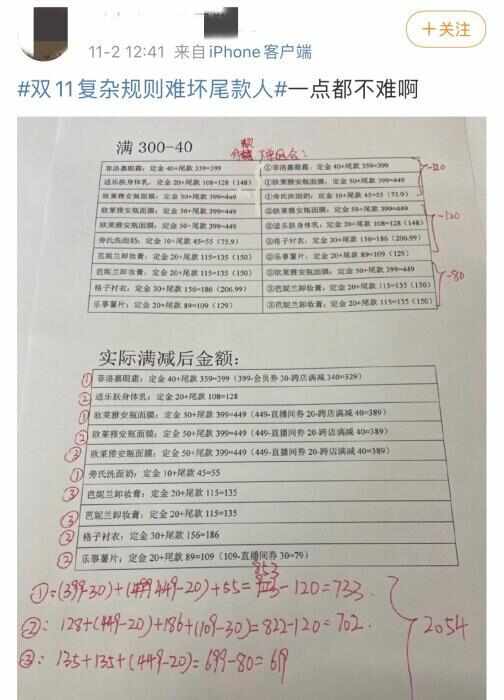 11-2 12:41 来自iPhone客户端
+关注
#双11复杂规则难坏尾款人#一点都不难啊
满 300-40
菲洛嘉眼霜：定金 40+尾款 359=399 ①菲洛嘉眼霜，定金 40+尾款 359=399
适乐肤身体乳，定金 20+尾款 108=128（148） ①欧莱雅安瓶面膜：定金 50+尾款 399=449
欧莱雅安瓶面膜：定金 50+尾款 399=449 ①旁氏洗面奶：定金 10+尾款 45=55（75.9）
欧莱雅安瓶面膜：定金 50+尾款 399=449 ②欧莱雅安瓶面膜：定金 50+尾款 399=449
欧莱雅安瓶面膜：定金 50+尾款 399=449 ②适乐肤身体乳：定金 20+尾款 108=128（148）
旁氏洗面奶：定金 10+尾款 45=55（75.9） ②格子衬衣：定金 30+尾款 156=186（206.99）
芭妮兰卸妆膏：定金 20+尾款 115=135（150） ②乐事薯片：定金 20+尾款 89=109（129）
芭妮兰卸妆膏：定金 20+尾款 115=135（150） ③欧莱雅安瓶面膜：定金 50+尾款 399=449
格子衬衣：定金 30+尾款 156=186（206.99） ③芭妮兰卸妆膏：定金 20+尾款 115=135（150）
乐事薯片：定金 20+尾款 89=109（129） ③芭妮兰卸妆膏：定金 20+尾款 115=135（150）
-120
-120
-80
实际满减后金额：
① 菲洛嘉眼霜：定金 40+尾款 359=399（399-会员券 30-跨店满减 340=329）
② 适乐肤身体乳：定金 20+尾款 108=128
① 欧莱雅安瓶面膜：定金 50+尾款 399=449（449-直播间券 20-跨店满减 40=389）
③ 欧莱雅安瓶面膜：定金 50+尾款 399=449（449-直播间券 20-跨店满减 40=389）
② 欧莱雅安瓶面膜：定金 50+尾款 399=449（449-直播间券 20-跨店满减 40=389）
① 旁氏洗面奶：定金 10+尾款 45=55
③ 芭妮兰卸妆膏：定金 20+尾款 115=135
③ 芭妮兰卸妆膏：定金 20+尾款 115=135
② 格子衬衣：定金 30+尾款 156=186
② 乐事薯片：定金 20+尾款 89=109（109-直播间券 30=79）
①=(399-30)+(449-20)+55=853-120=733
②：128+(449-20)+186+(109-30)=822-120=702
③：135+135+(449-20)=699-80=619
2054